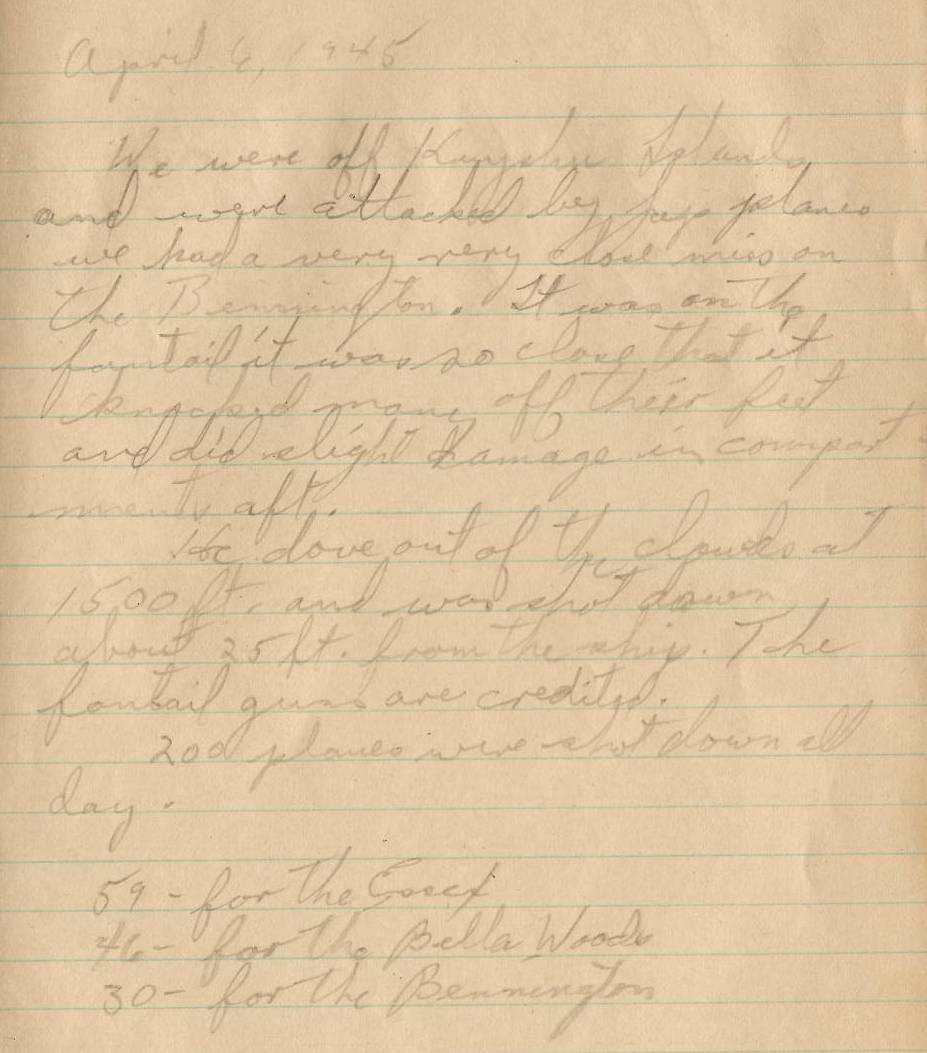 April 6, 1945
We were off Kuyshu Islands
and were attacked by Japs planes
we had a very very close miss on
the Bennington. It was on the
fantail it was so close that it
knocked many off their feet
and did slight damage in compart-
ments aft.
He dove out of the clouds at
1500 ft. and was shot down
about 25 ft. from the ship. The
fantail guns are credited.
200 planes were shot down all
day.
59 - for the Essex
46 - for the Bella Woods
30 - for the Bennington